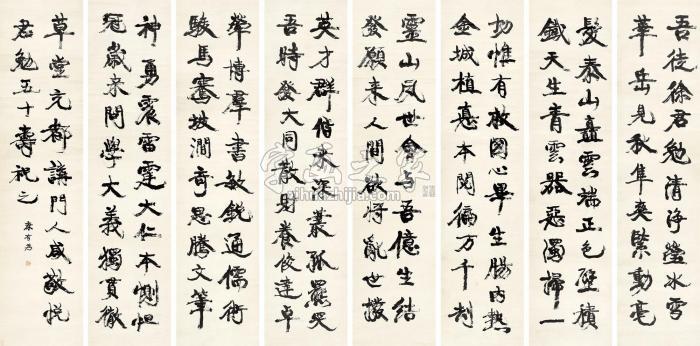 吾徒徐君勉清淨瑩冰雪
華岳見秋隼爽緊動毫
髮泰山矗雲端正色壁積
鐵天生青雲器惡濁掃一
切惟有救國心畢生腸內熱
金城植惪本閱徧万千刧
靈山夙世會与吾億生結
發願來人間欲將亂世撥
英才群偕來深叢孤羆
吾時發大同散財養俊達卓
犖博羣書敏銳通儒術
駿馬騫坡澗奇思騰文筆
神勇震雷霆大仁本惻怛
冠歲來問學大義獨貫徹
草堂充都講門人咸敬悦
君勉五十壽祝之 康有為